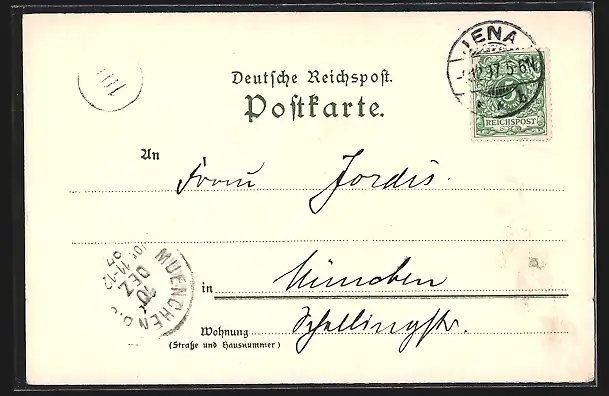 JENA
12 97 5-6N
5
REICHSPOST
101
Deutsche Reichspost.
Postkarte.
An Frau Jordis.
MUENCHEN
10
DEZ
11-12
in München
Wohnung Schellingstr.
(Straße und Hausnummer)